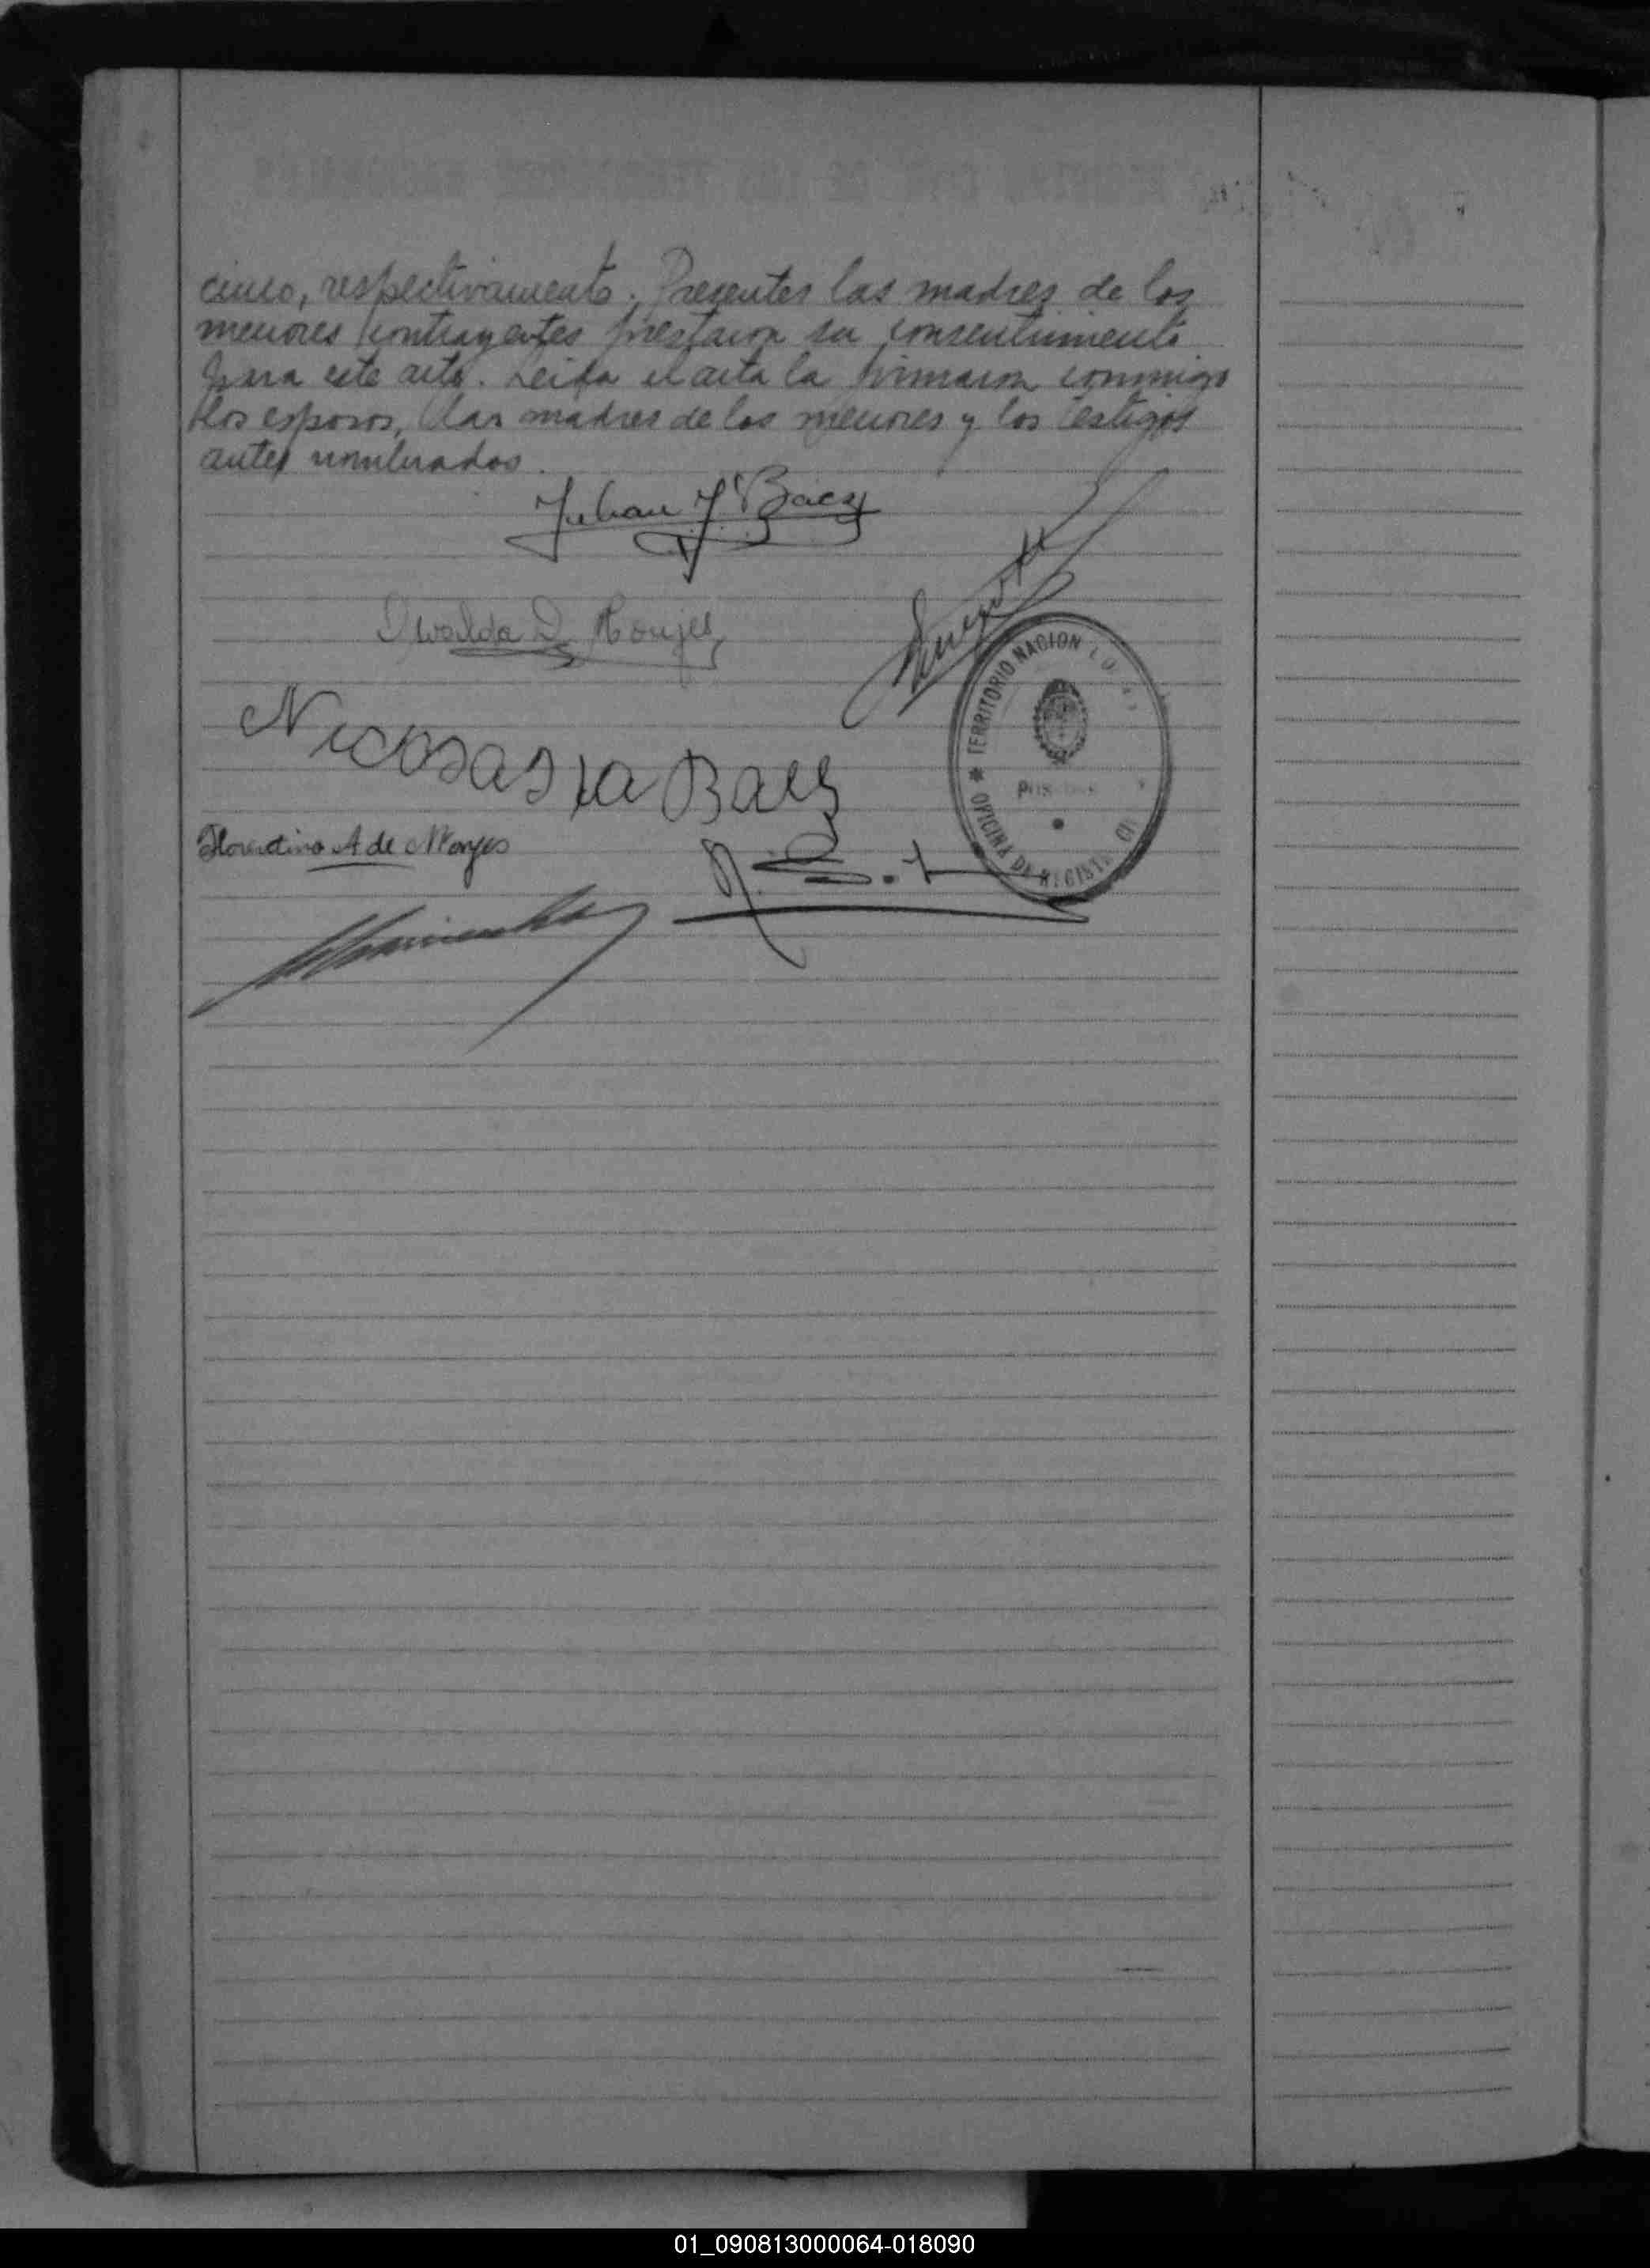 cinco, respectivamente. Presentes las madres de los
menores contrayentes prestaron su consentimiento
para este acto. Leida el acta la firmaron conmigo
los esposos, las madres de los menores y los testigos
antes nombrados.
Julian J Baez
D Monjes
Baez
Florentina A de Monjes
TERRITORIO NACION
OFICINA DE REGIST
01_090813000064-018090